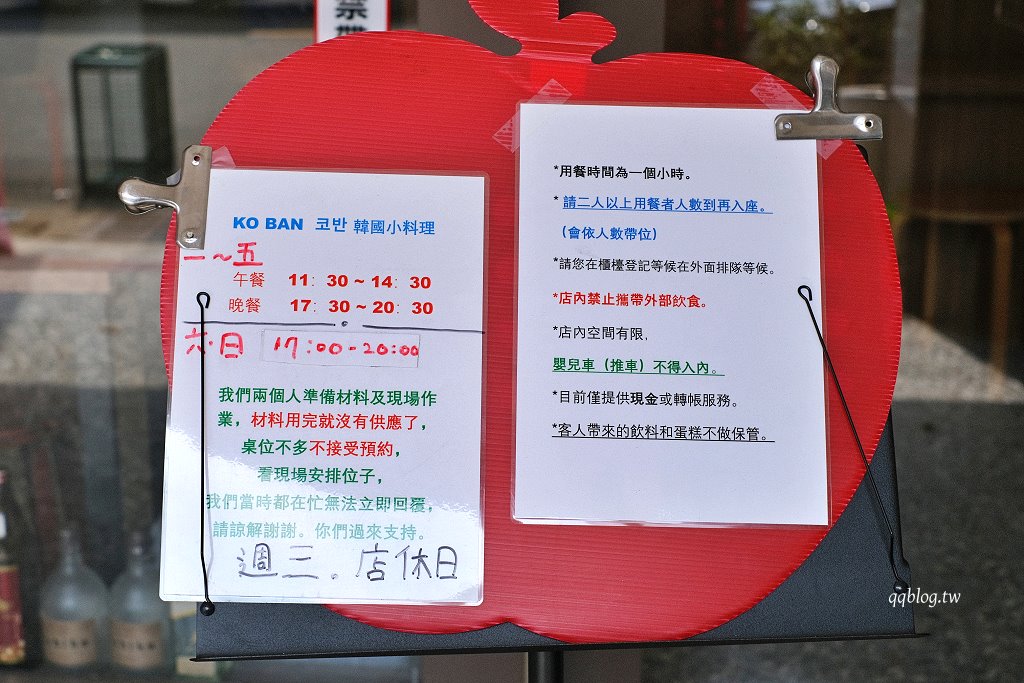 禁
KO BAN 코반 韓國小料理
一~五
午餐 11: 30 ~ 14: 30
晚餐 17: 30 ~ 20: 30
六.日 17:00-20:00
我們兩個人準備材料及現場作
業，材料用完就沒有供應了，
桌位不多不接受預約，
看現場安排位子，
我們當時都在忙無法立即回覆，
請諒解謝謝。你們過來支持。
週三。店休日
*用餐時間為一個小時。
* 請二人以上用餐者人數到再入座。
（會依人數帶位）
*請您在櫃檯登記等候在外面排隊等候。
*店內禁止攜帶外部飲食。
*店內空間有限,
嬰兒車（推車）不得入內。
*目前僅提供現金或轉帳服務。
*客人帶來的飲料和蛋糕不做保管。
qqblog.tw